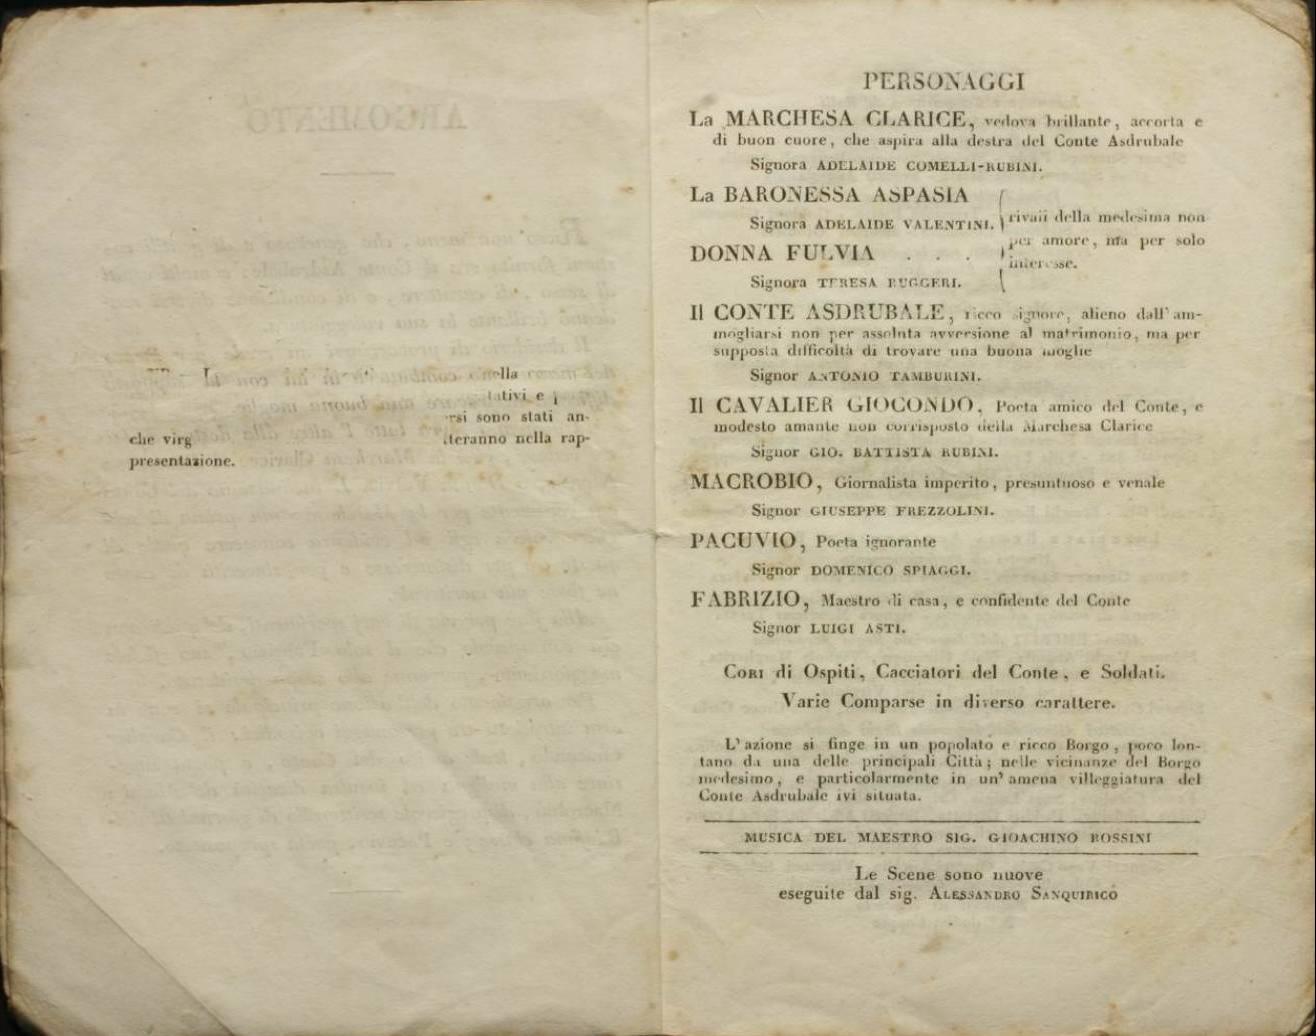 ella
tativi e
rsi sono stati an-
che virg
teranno nella rap-
presentazione.
PERSONAGGI
La MARCHESA CLARICE, vedova brillante, accorta e
di buon cuore, che aspira alla destra del Conte Asdrubale
Signora ADELAIDE COMELLI-RUBINI.
La BARONESSA ASPASIA
Signora ADELAIDE VALENTINI.
DONNA FULVIA . . .
Signora TERESA RUGGERI.
rivali della medesima non
per amore, ma per solo
interesse.
Il CONTE ASDRUBALE, ricco signore, alieno dall'am-
mogliarsi non per assoluta avversione al matrimonio, ma per
supposta difficoltà di trovare una buona moglie
Signor ANTONIO TAMBURINI.
Il CAVALIER GIOCONDO, Poeta amico del Conte, e
modesto amante non corrisposto della Marchesa Clarice
Signor GIO. BATTISTA RUBINI.
MACROBIO, Giornalista imperito, presuntuoso e venale
Signor GIUSEPPE FREZZOLINI.
PACUVIO, Poeta ignorante
Signor DOMENICO SPIAGGI.
FABRIZIO, Maestro di casa, e confidente del Conte
Signor LUIGI ASTI.
CORI di Ospiti, Cacciatori del Conte, e Soldati.
Varie Comparse in diverso carattere.
L'azione si finge in un popolato e ricco Borgo, poco lon-
tano da una delle principali Città; nelle vicinanze del Borgo
medesimo, e particolarmente in un' amena villeggiatura del
Conte Asdrubale ivi situata.
MUSICA DEL MAESTRO SIG. GIOACHINO ROSSINI
Le Scene sono nuove
eseguite dal sig. ALESSANDRO SANQUIRICO